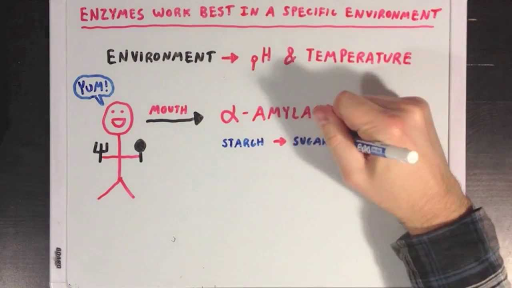 ENZYMES WORK BEST IN A SPECIFIC ENVIRONMENT
ENVIRONMENT → pH & TEMPERATURE
YUM!
MOUTH → α-AMYLA
STARCH → SUGA